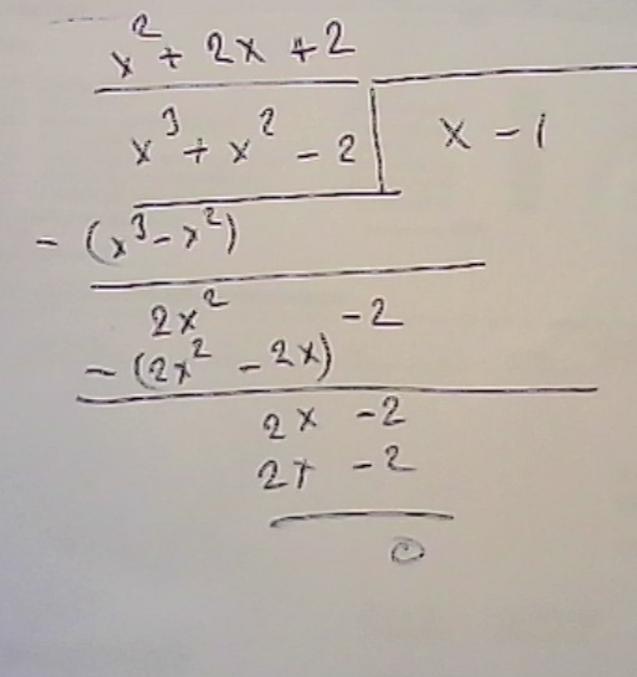 x² + 2x + 2
x³ + x² - 2 x - 1
- (x³ - x²)
2x² - 2
- (2x² - 2x)
2x - 2
2x - 2
0